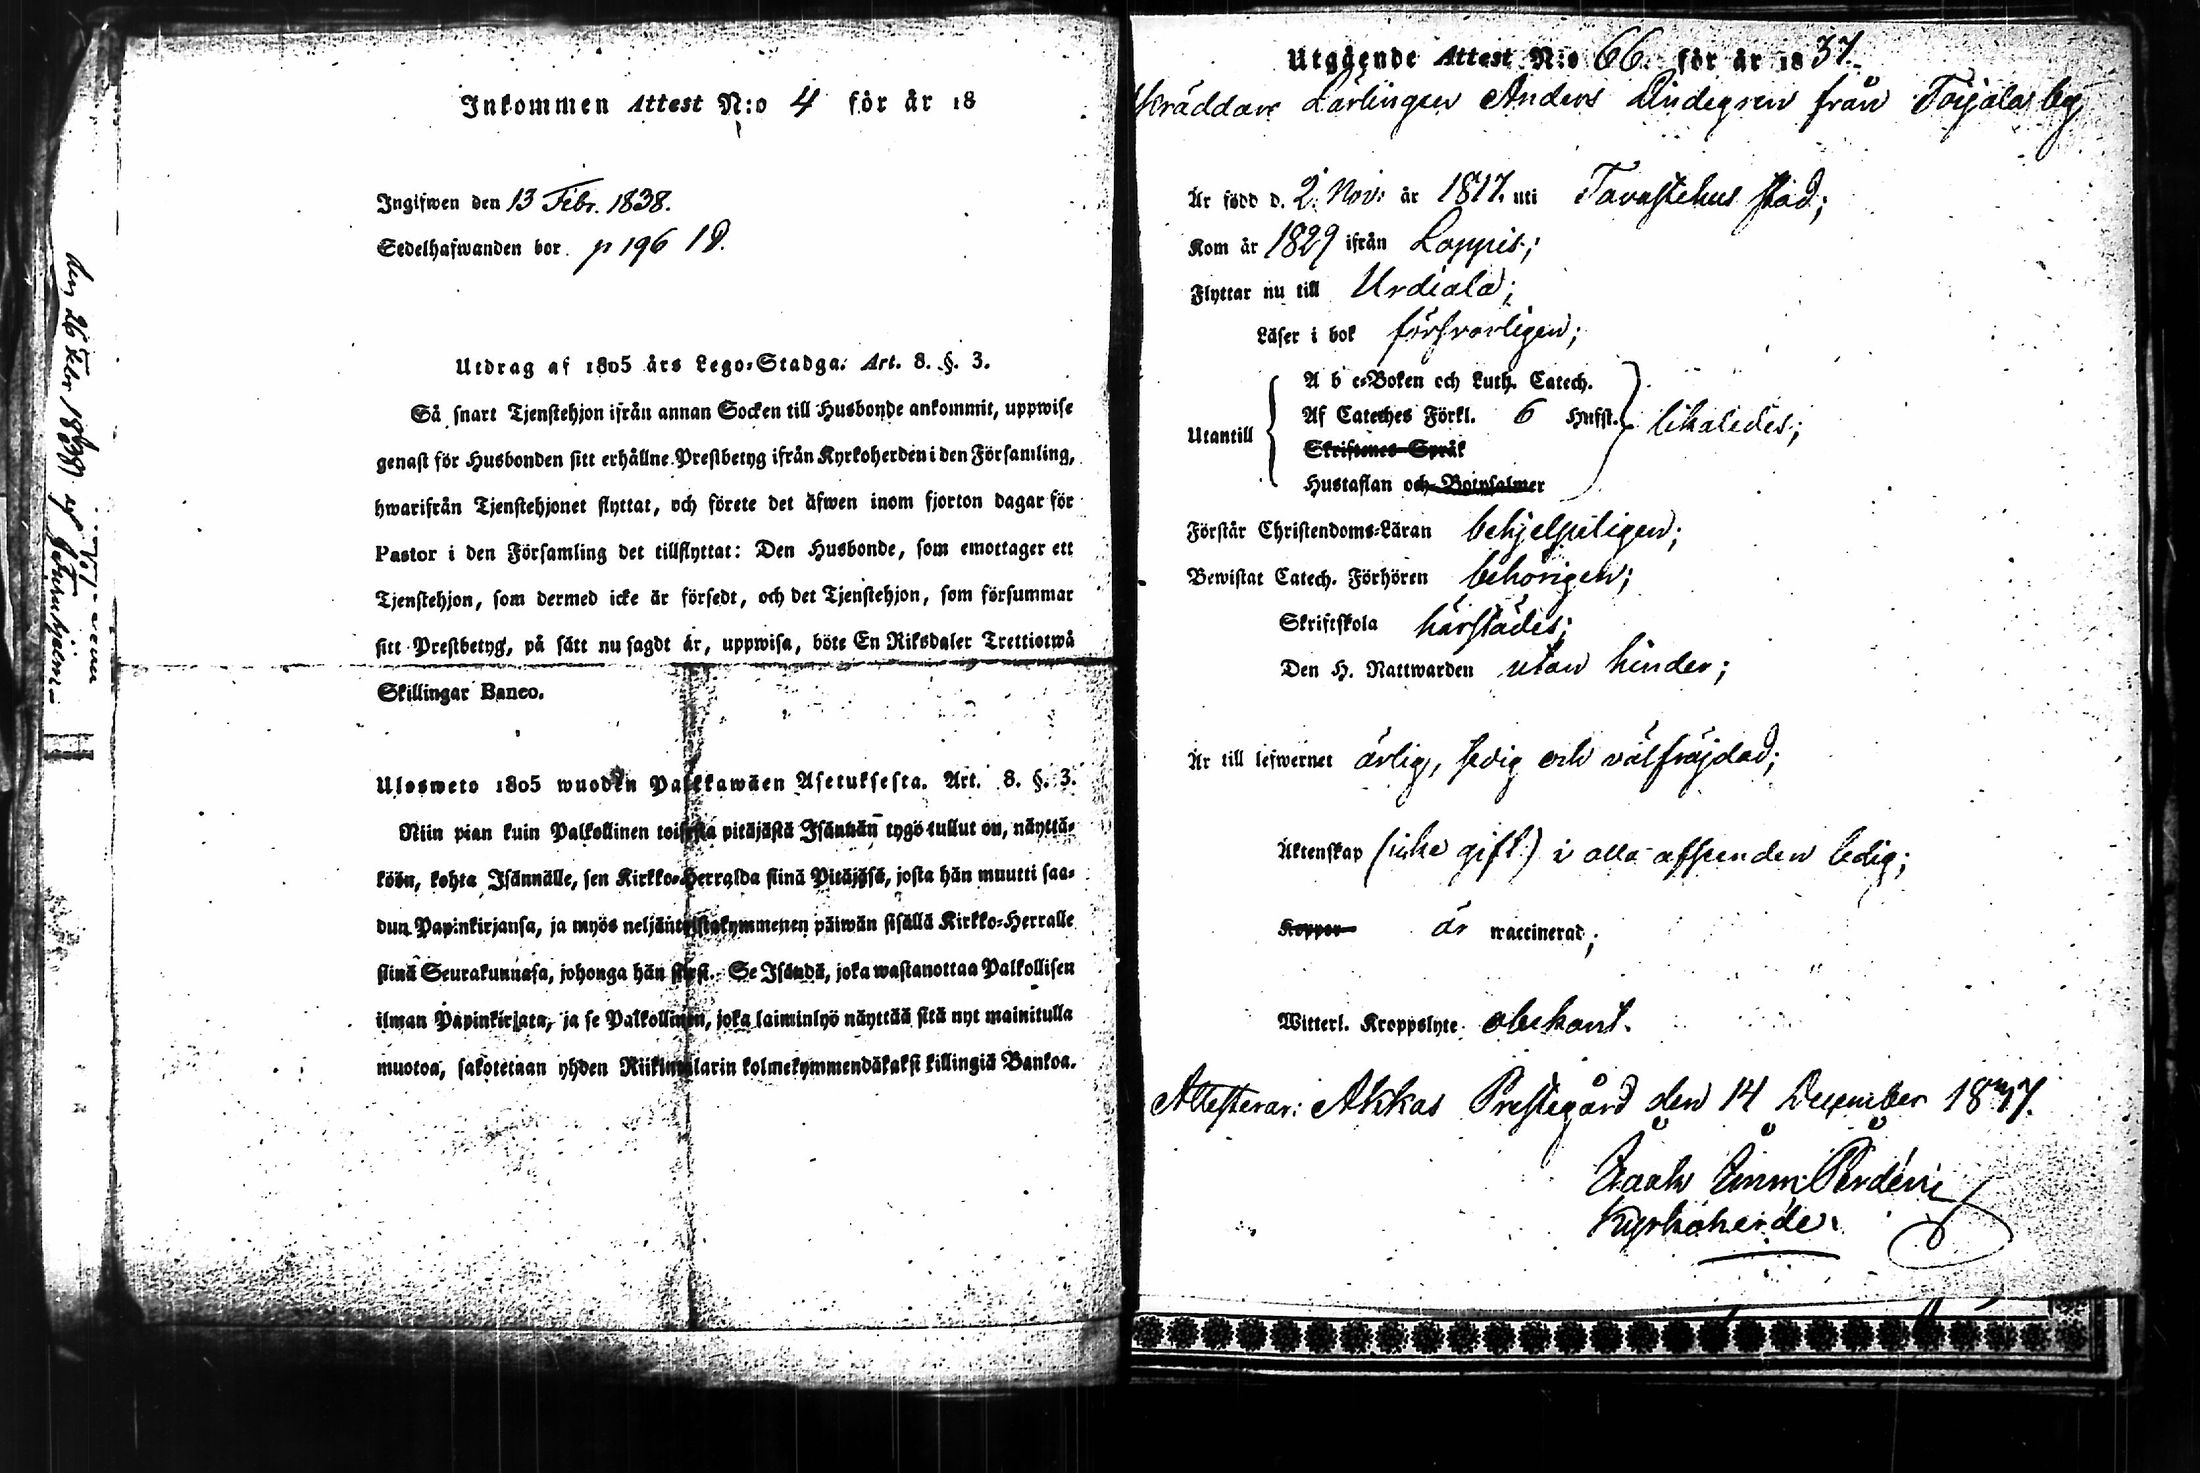 Inkommen Attest N:o 4 för år 18
Ingifwen den 13 Febr. 1838.
Sedelhafwanden bor p 196
Utdrag af 1805 års Lego-Stadga. Art. 8. §. 3.
Så snart Tjenstehjon ifrån annan Socken till Husbonde ankommit, uppwise
genast för Husbonden sitt erhållne Prestbetyg ifrån Kyrkoherden i den Församling,
hwarifrån Tjenstehjonet flyttat, och förete det äfwen inom fjorton dagar för
Pastor i den Församling det tillflyttat: Den Husbonde, som emottager ett
Tjenstehjon, som dermed icke är försedt, och det Tjenstehjon, som försummar
sitt Prestbetyg, på sätt nu sagdt är, uppwisa, böte En Riksdaler Trettiotwå
Skillingar Banco.
Ulosweto 1805 wuoden Palkkawäen Asetuksesta. Art. 8. §. 3.
Niin pian kuin Palkollinen toisesta pitäjästä Isännän tygö tullut on, näyttä-
köön, kohta Isännälle, sen Kirkko-Herralda siinä Pitäjäsä, josta hän muutti saa-
dun Papinkirjansa, ja myös neljäntoistakymmenen päiwän sisällä Kirkko-Herralle
siinä Seurakunnasa, johonga hän siirsi. Se Isändä, joka wastanottaa Palkollisen
ilman Papinkirjata, ja se Palkollinen, joka laiminlyö näyttää sitä nyt mainitulla
muotoa, sakotetaan yhden Riikintalarin kolmekymmendäkaksi killingiä Bankoa.
den 26 Febr 1838 af
Utgående Attest N:o 66. för år 1837.
Skräddare Lärlingen Anders Lindegren från Toijala by
Är född d. 2 Nov: år 1817. uti Tavastehus stad;
Kom år 1829 ifrån Loppis;
Flyttar nu till Urdiala;
Läser i bok försvarligen;
A b c-Boken och Luth. Catech.
Af Cateches Förkl. 6 Hufst.
Utantill likaledes;
Skriftenes Språk
Hustaflan och Botpsalmer
Förstår Christendoms-Läran behjelpeligen;
Bewistat Catech. Förhören behörigen;
Skriftskola härstädes;
Den H. Nattwarden utan hinder;
Är till lefwernet ärlig, sedig och välfräjdad;
Äktenskap (icke gift) i alla afseenden ledig;
Koppor är waccinerad;
Witterl. Kroppslyte obekant.
Attesterar: Akkas Prestegård den 14 December 1837.
Isaak Emm:
Kyrkoherde.